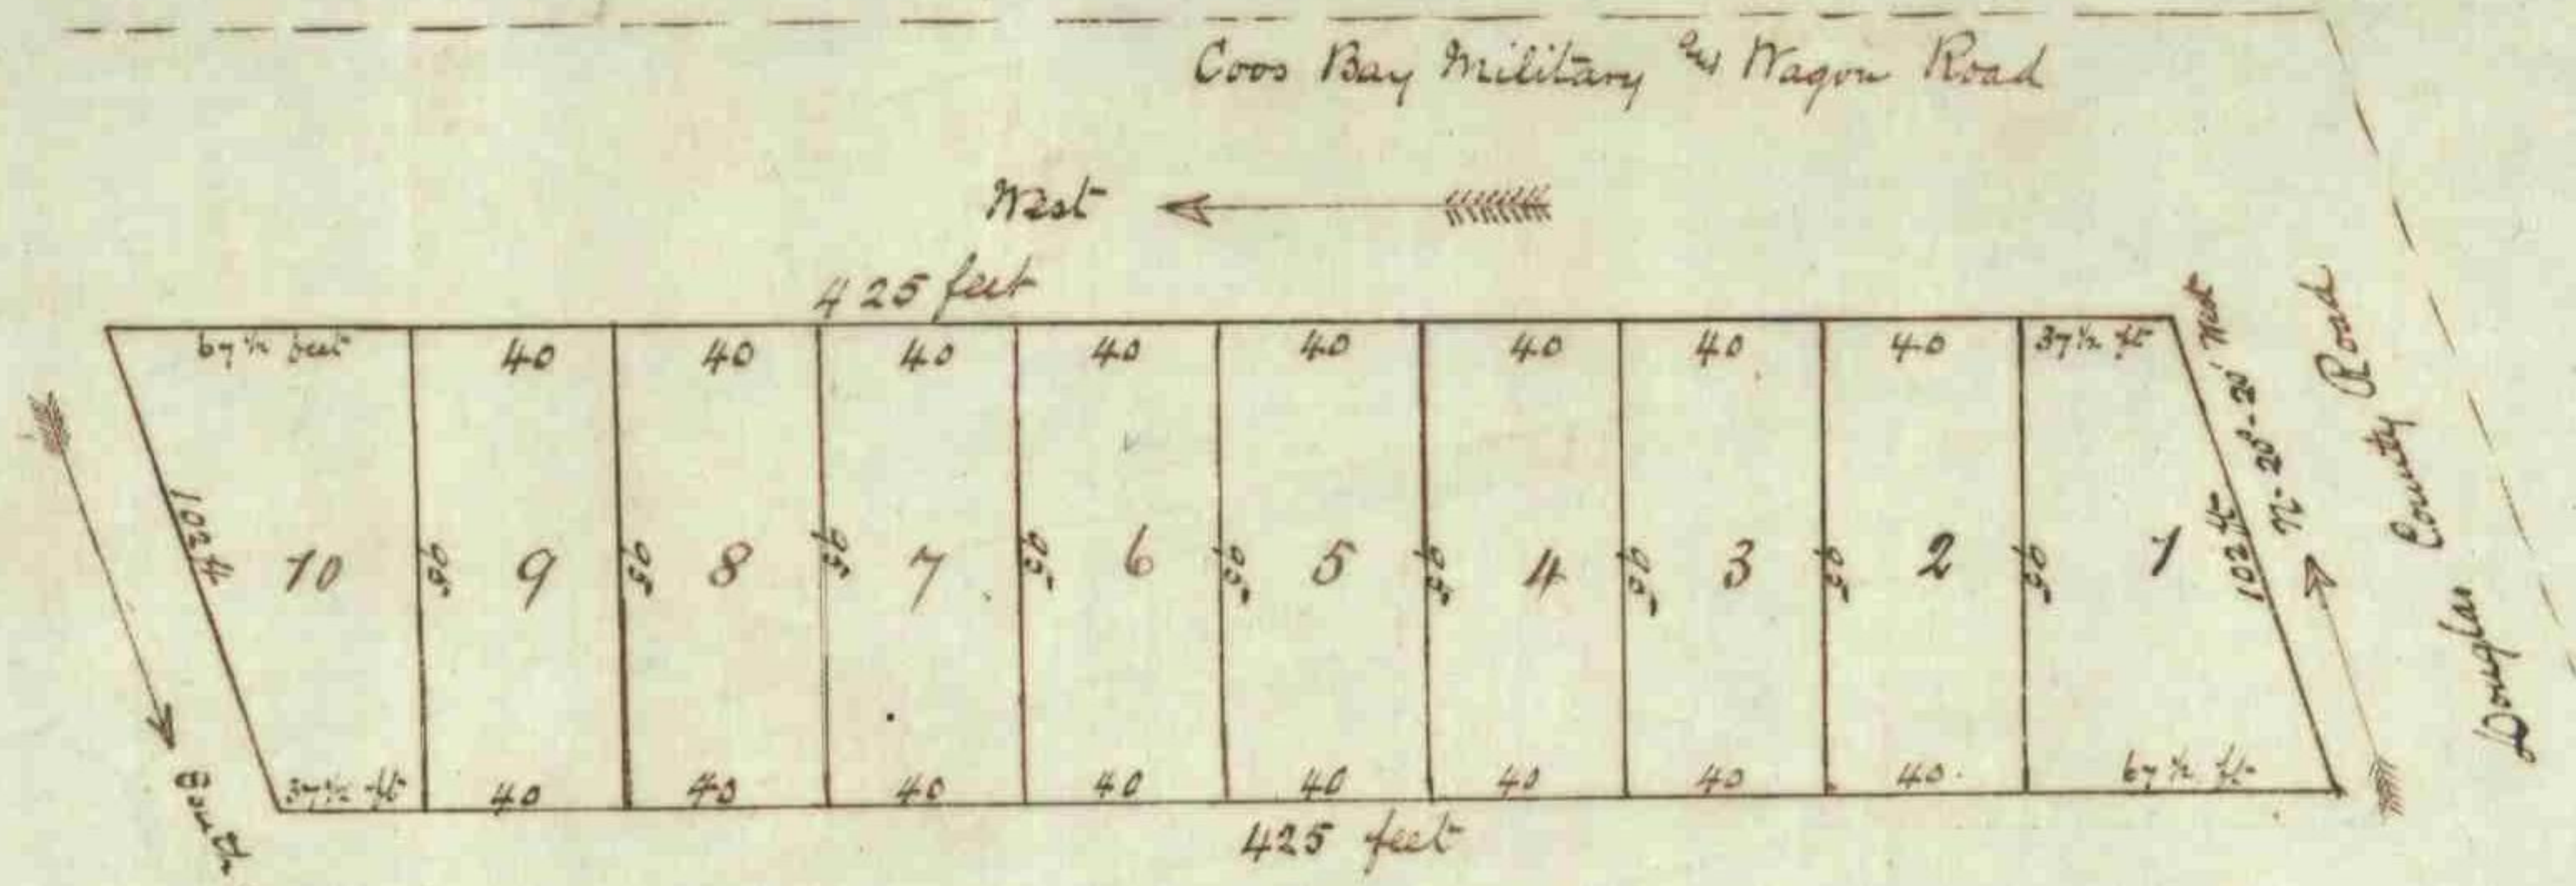 Coos Bay Military Wagon Road
West
425 feet
67 ½ feet 40 40 40 40 40 40 40 40 37 ½ ft
102 ft 10 95 9 95 8 95 7 95 6 95 5 95 4 95 3 95 2 95 1 102 ft
N-20°-20' West
Douglas County Road
37 ½ ft 40 40 40 40 40 40 40 40 67 ½ ft
South
425 feet